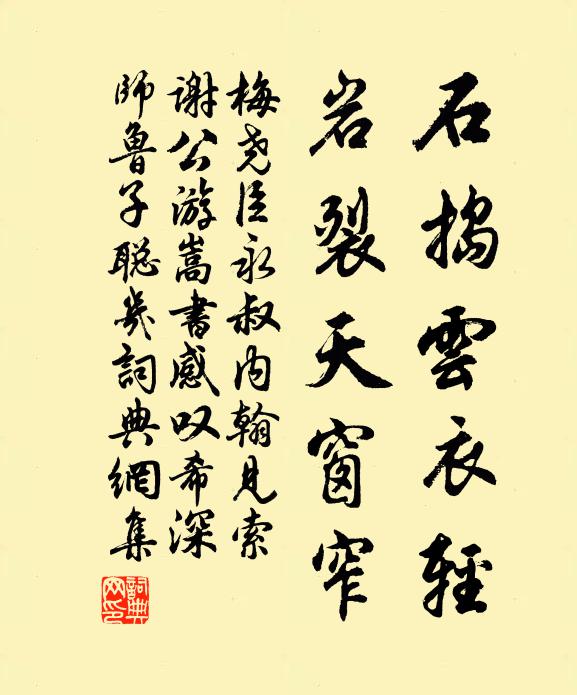 石搗雲衣輕
岩裂天窗窄
梅尧臣永叔内翰見索
謝公游嵩書感叹希深
師魯子聪幾詞典網集